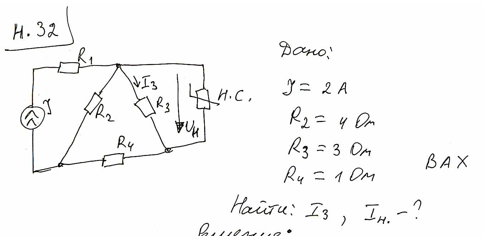 Н. 32
R1
I3
R2
R3
Н.С.
J
UН
R4
Дано:
J = 2 А
R2 = 4 Ом
R3 = 3 Ом
R4 = 1 Ом
ВАХ
Найти: I3, Iн. - ?
Решение: